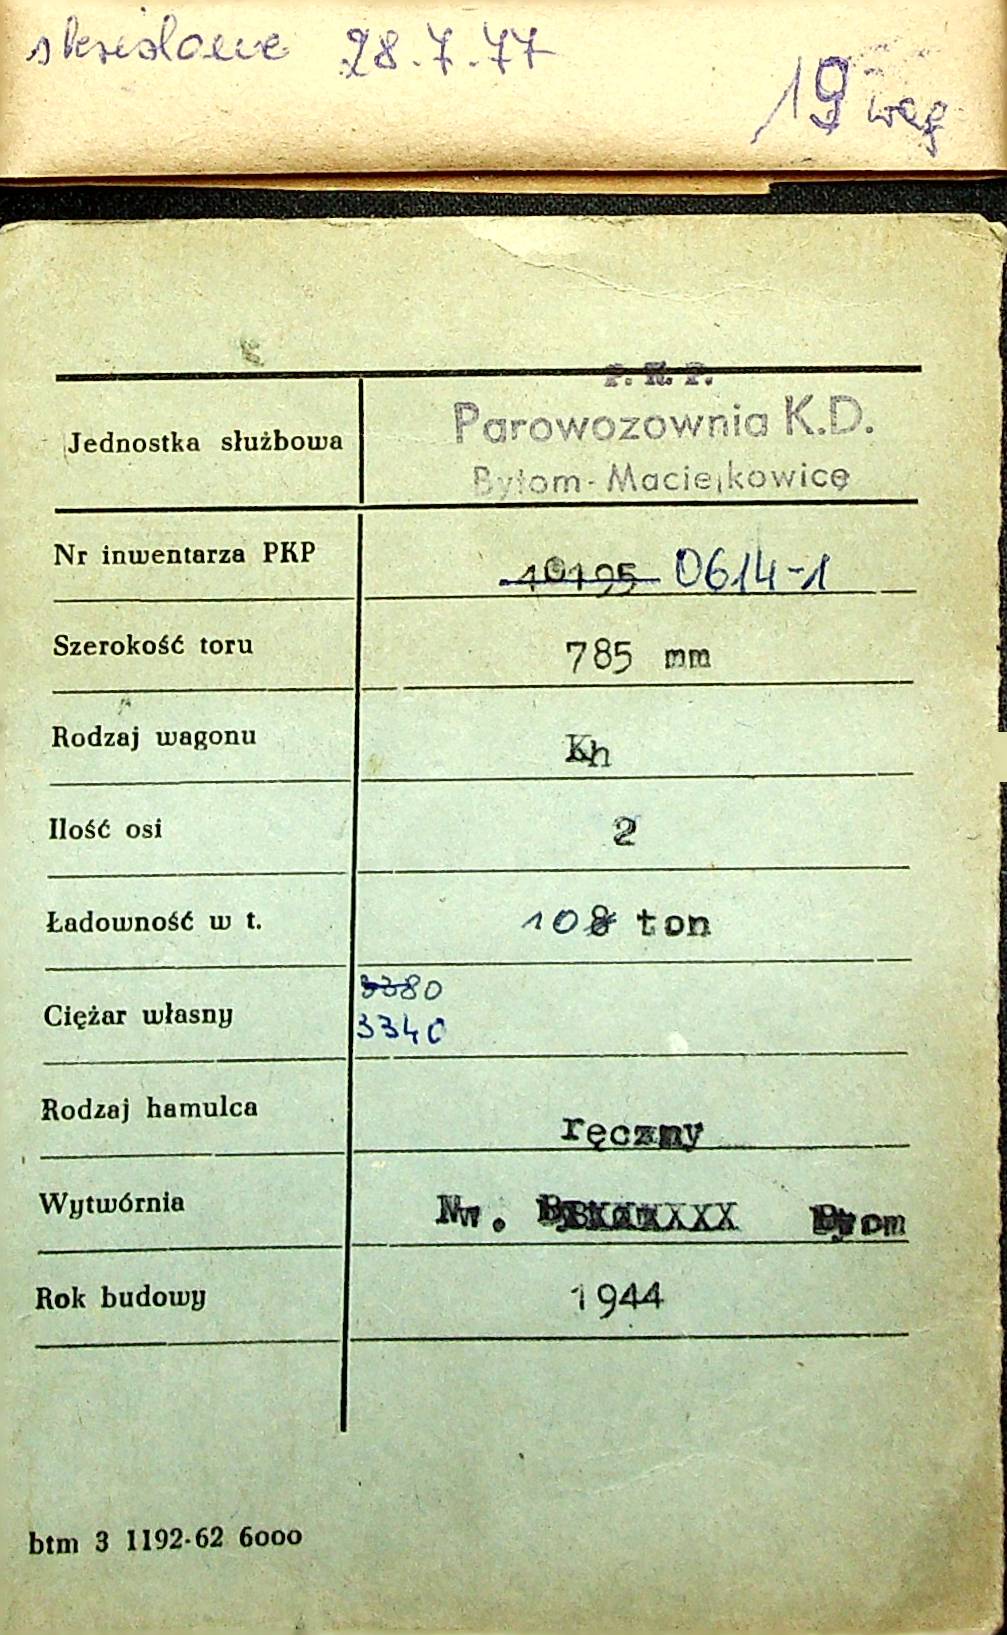 skreślone 28.7.77
19 wag
P. K. P.
Parowozownia K.D.
Jednostka służbowa
Bytom-Maciejkowice
Nr inwentarza PKP 10195 0614-1
Szerokość toru 785 mm
Rodzaj wagonu Kh
Ilość osi 2
Ładowność w t. 10 8 ton
3380
Ciężar własny
3340
Rodzaj hamulca ręczny
Wytwórnia Nw.
Rok budowy 1944
btm 3 1192-62 6000